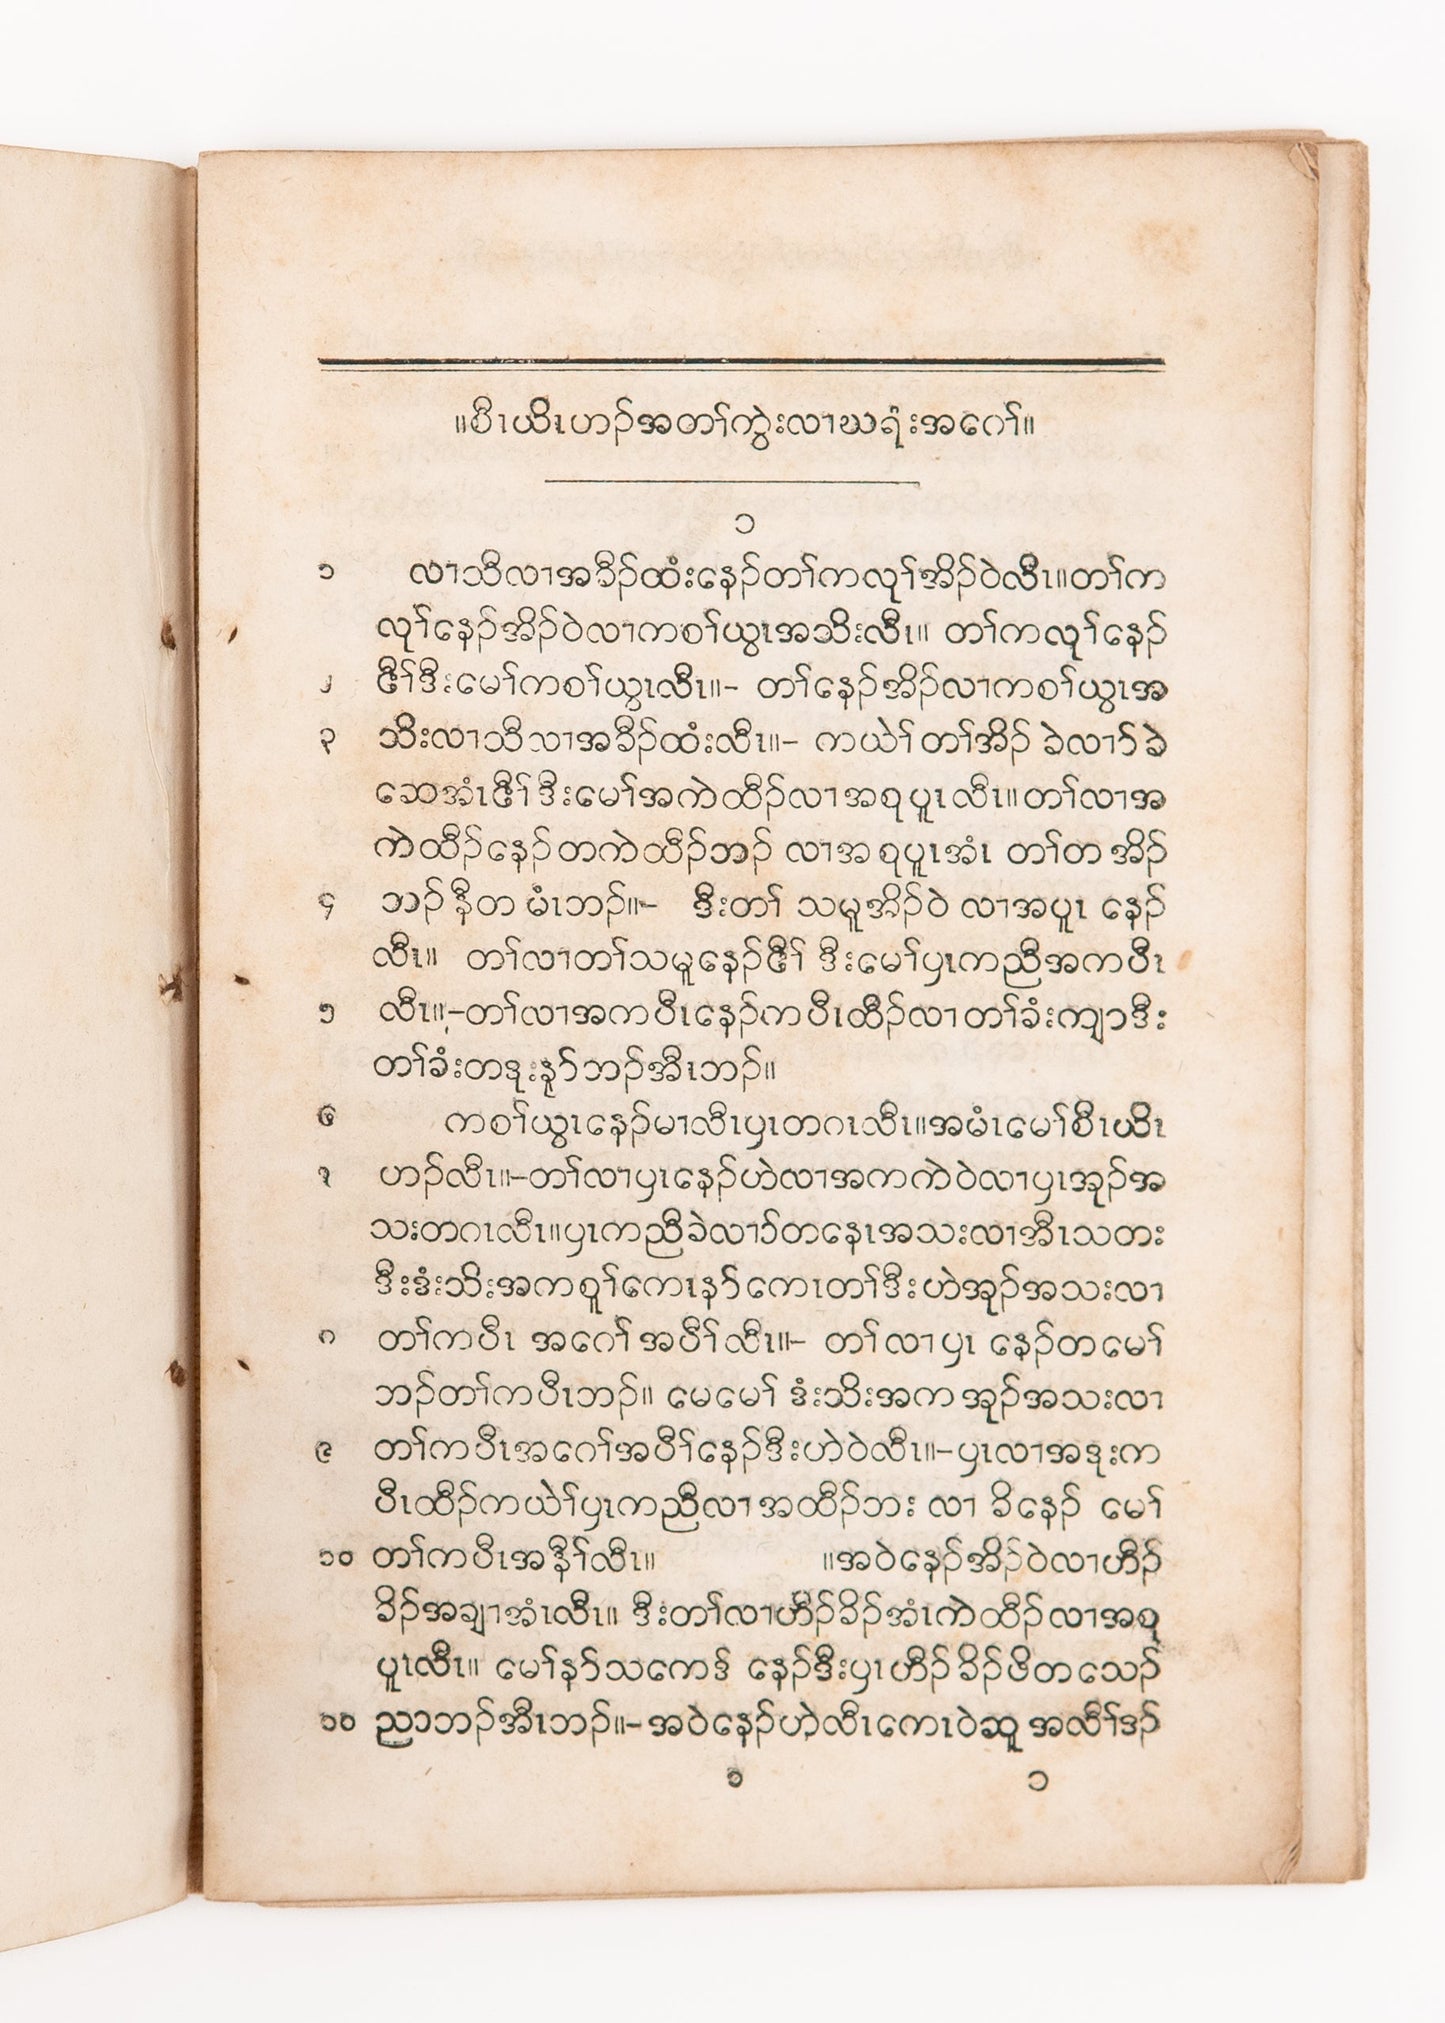 ။စီၤယိၤဟၣ်အတၢ်ကွဲးလၢဃရံးအဂ့ၢ်။
၁
၁ လၢသီလၢအခီၣ်ထံးန့ၣ်တၢ်ကလုၢ်အိၣ်ဝဲလီၤ။တၢ်က
လုၢ်န့ၣ်အိၣ်ဝဲလၢကစၢ်ယွၤအသိးလီၤ။ တၢ်ကလုၢ်န့ၣ်
၂ ဇီၢ်ဒီးမ့ၢ်ကစၢ်ယွၤလီၤ။- တၢ်န့ၣ်အိၣ်လၢကစၢ်ယွၤအ
၃ သိးလၢသီလၢအခီၣ်ထံးလီၤ။- ကယဲၢ်တၢ်အိၣ် ခဲလၢာ်ခဲ
ဆ့အံၤဇီၢ်ဒီးမ့ၢ်အကဲထီၣ်လၢအစုပူၤလီၤ။တၢ်လၢအ
ကဲထီၣ်န့ၣ်တကဲထီၣ်ဘၣ် လၢအစုပူၤအံၤ တၢ်တအိၣ်
၄ ဘၣ်နီတမံၤဘၣ်။- ဒီးတၢ် သမူအိၣ်ဝဲ လၢအပူၤ န့ၣ်
လီၤ။ တၢ်လၢတၢ်သမူန့ၣ်ဇီၢ် ဒီးမ့ၢ်ပှၤကညီအကပီၤ
၅ လီၤ။-တၢ်လၢအကပီၤန့ၣ်ကပီၤထီၣ်လၢတၢ်ခံးကျါဒီး
တၢ်ခံးတဒုးနုာ်ဘၣ်အီၤဘၣ်။
၆ ကစၢ်ယွၤန့ၣ်မၢလီၤပှၤတဂၤလီၤ။အမံၤမ့ၢ်စီၤယိၤ
၇ ဟၣ်လီၤ။-တၢ်လၢပှၤန့ၣ်ဟဲလၢအကကဲဝဲလၢပှၤအုၣ်အ
သးတဂၤလီၤ။ပှၤကညီခဲလၢာ်တနၤ့အသးလၢအီၤသတး
ဒီးဒံးသိးအကစူၢ်က့ၤနာ်က့ၤတၢ်ဒီးဟဲအုၣ်အသးလၢ
၈ တၢ်ကပီၤ အဂ့ၢ်အပီၢ်လီၤ။- တၢ်လၢပှၤ န့ၣ်တမ့ၢ်
ဘၣ်တၢ်ကပီၤဘၣ်။ မ့မ့ၢ် ဒံးသိးအကအုၣ်အသးလၢ
၉ တၢ်ကပီၤအဂ့ၢ်အပီၢ်န့ၣ်ဒီးဟဲဝဲလီၤ။-ပှၤလၢအဒုးက
ပီၤထီၣ်ကယဲၢ်ပှၤကညီလၢအထီၣ်ဘး လၢ ခိန့ၣ် မ့ၢ်
၁၀ တၢ်ကပီၤအနီၢ်လီၤ။ ။အဝဲန့ၣ်အိၣ်ဝဲလၢဟီၣ်
ခိၣ်အချၢအံၤလီၤ။ ဒီးတၢ်လၢဟီၣ်ခိၣ်အံၤကဲထီၣ်လၢအစု
ပူၤလီၤ။ မ့ၢ်နာ်သက့ဒ် န့ၣ်ဒီးပှၤဟီၣ်ခိၣ်ဖိတသ့ၣ်
၁၁ ညါဘၣ်အီၤဘၣ်။-အဝဲန့ၣ်ဟဲလီၤက့ၤဝဲဆူအလီၢ်ဒၣ်
၁ ၁